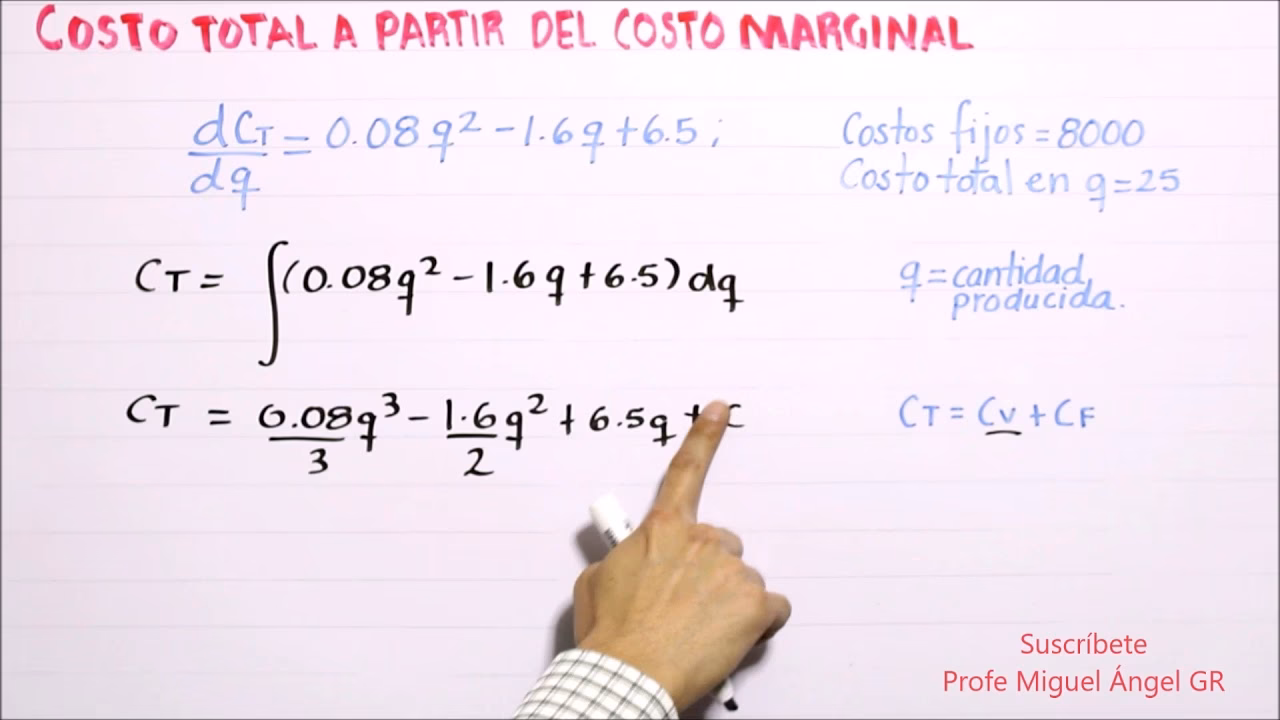 COSTO TOTAL A PARTIR DEL COSTO MARGINAL
dCT/dq = 0.08q² - 1.6q + 6.5 ;
Costos fijos = 8000
Costo total en q = 25
CT = ∫(0.08q² - 1.6q + 6.5) dq
q = cantidad
producida.
CT = 0.08/3 q³ - 1.6/2 q² + 6.5q + C
CT = CV + CF
Suscríbete
Profe Miguel Ángel GR